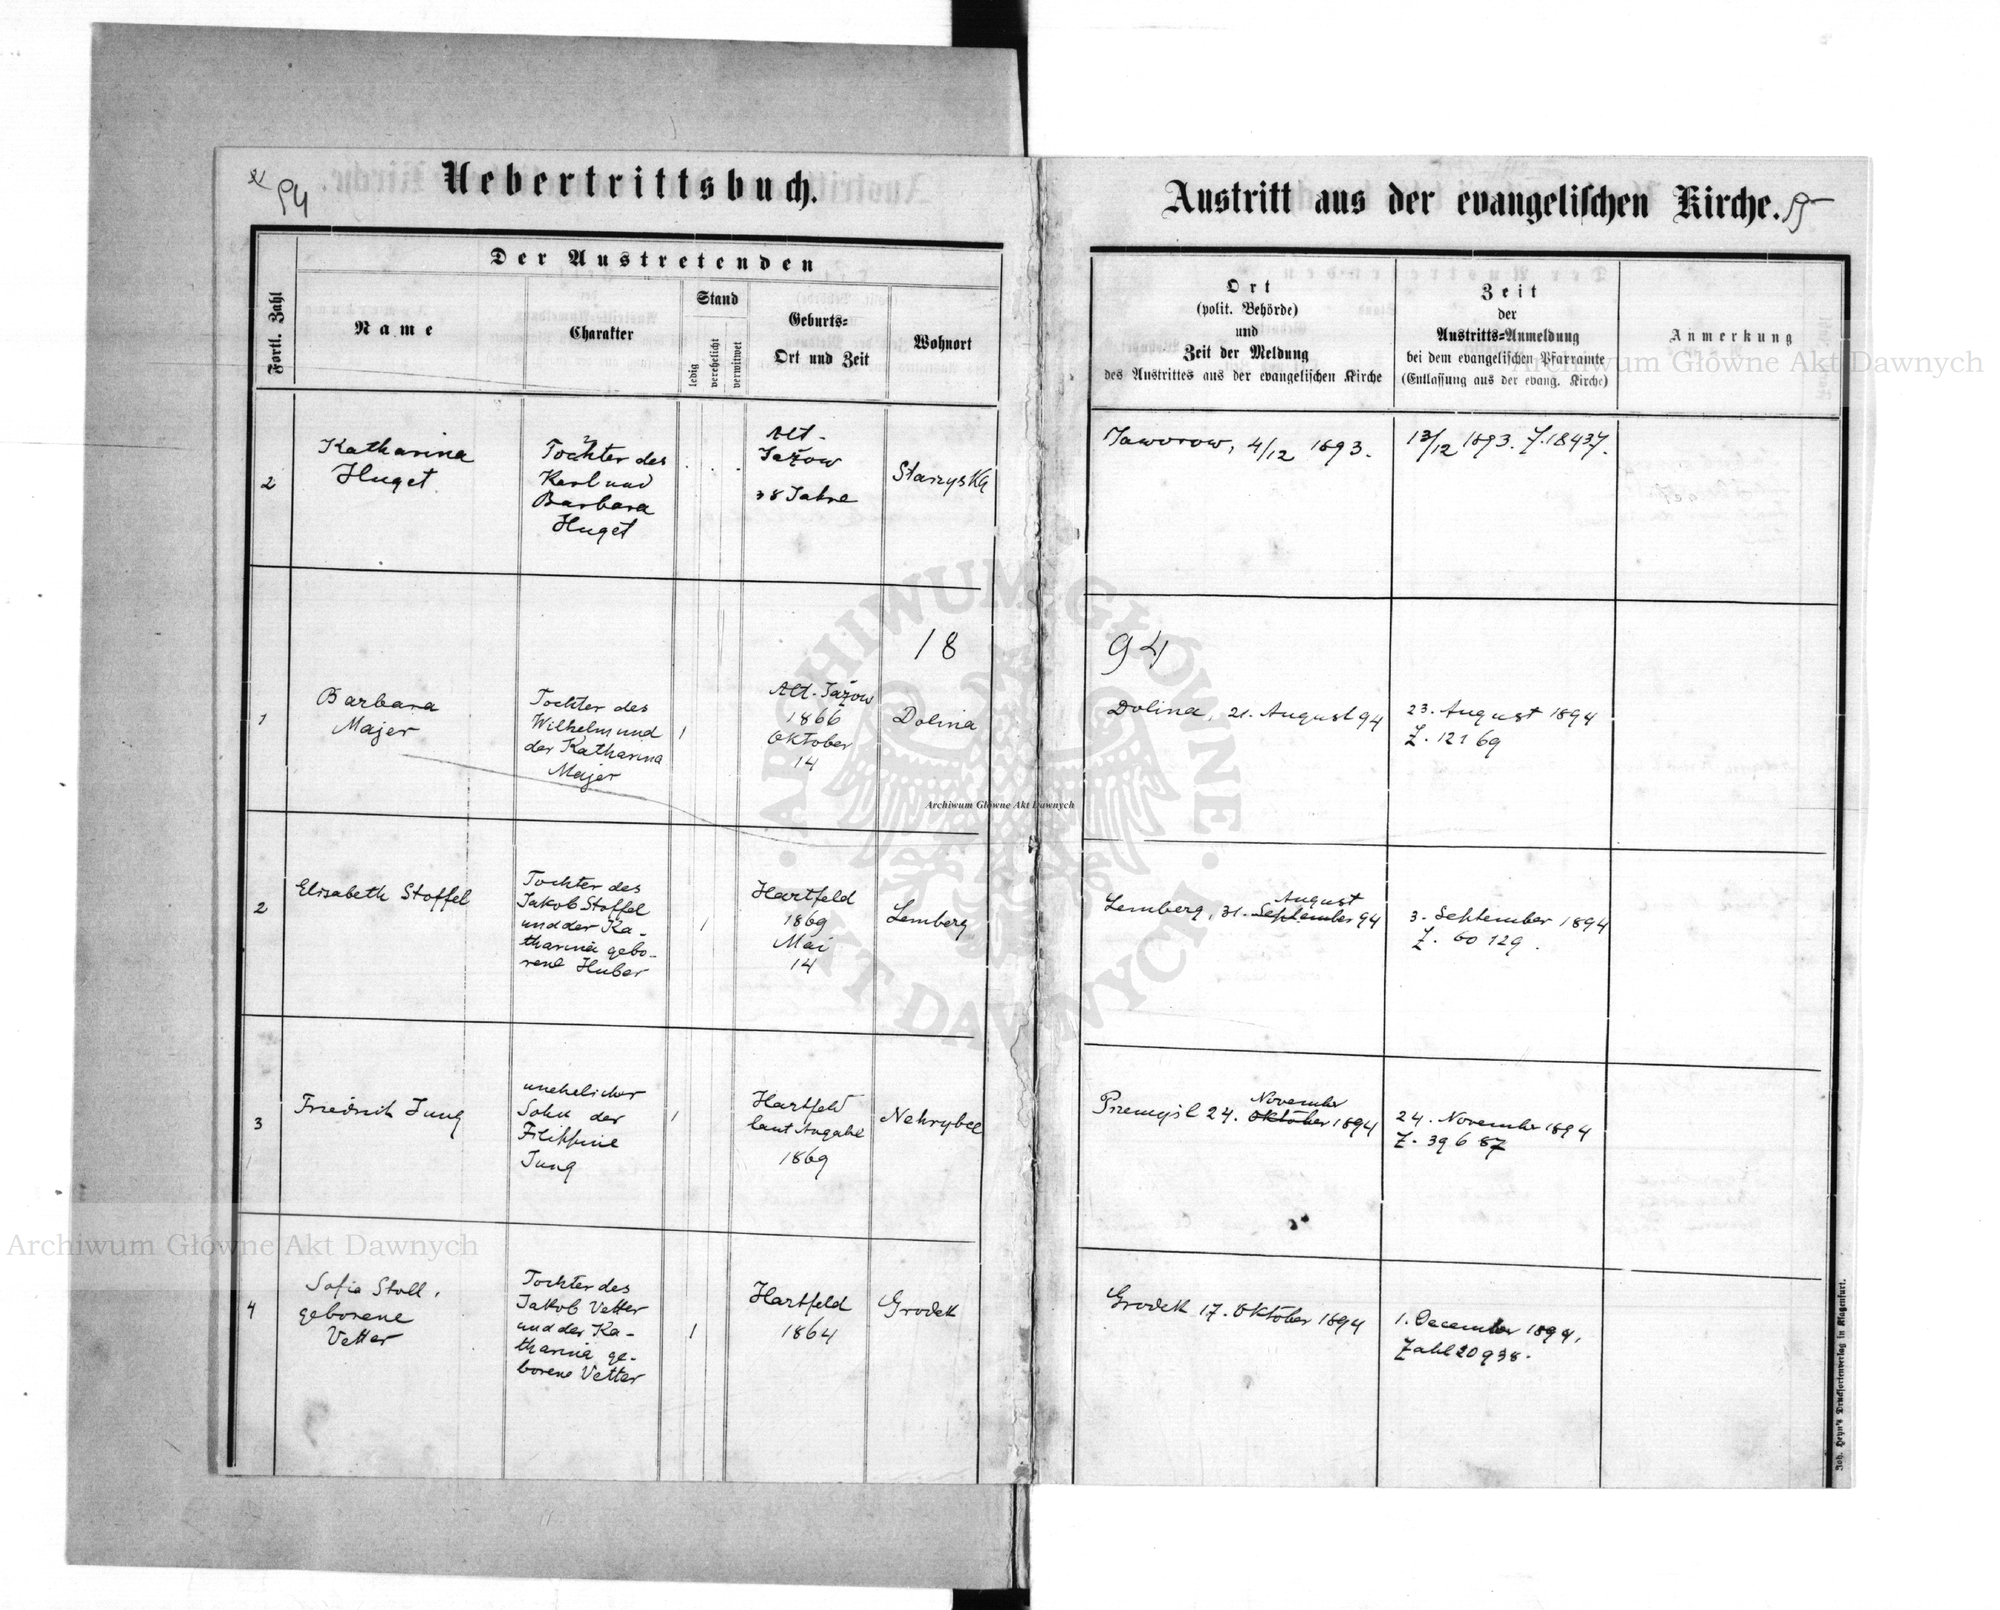 94
Uebertrittsbuch.
Fortl. Zahl
Der Austretenden
Name
Charakter
Stand
ledig
verehelicht
verwitwet
Geburts-
Ort und Zeit
Wohnort
2
Katharina
Huget
Tochter des
Karl und
Barbara
Huget
Alt-
Jažow
38 Jahre
Starzyska
18
1
Barbara
Majer
Tochter des
Wilhelm und
der Katharina
Majer
1
Alt-Jažow
1866
Oktober
14
Dolina
2
Elisabeth Stoffel
Tochter des
Jakob Stoffel
und der Ka-
tharina gebo-
rene Huber
1
Hartfeld
1869
Mai
14
Lemberg
3
Friedrich Jung
unehelicher
Sohn der
Filippine
Jung
1
Hartfeld
laut Angabe
1869
Nehrybce
4
Sofia Stoll,
geborene
Vetter
Tochter des
Jakob Vetter
und der Ka-
tharina ge-
borene Vetter
1
Hartfeld
1864
Grodek
Austritt aus der evangelischen Kirche.
Ort
(polit. Behörde)
und
Zeit der Meldung
des Austrittes aus der evangelischen Kirche
Zeit
der
Austritts-Anmeldung
bei dem evangelischen Pfarramte
(Entlassung aus der evang. Kirche)
Anmerkung
Jaworow, 4/12 1893.
13/12 1893. Z. 18437.
94
Dolina, 21. August 94
23. August 1894
Z. 12169
August
Lemberg, 31. September 94
3. September 1894
Z. 60129.
November
Przemysl 24. Oktober 1894
24. November 1894
Z. 39687
Grodek 17. Oktober 1894
1. December 1894,
Zahl 20938.
Joh. Heyn's Drucksortenverlag in Klagenfurt.
Archiwum Główne Akt Dawnych
Archiwum Główne Akt Dawnych
Archiwum Główne Akt Dawnych
ARCHIWUM GŁÓWNE AKT DAWNYCH